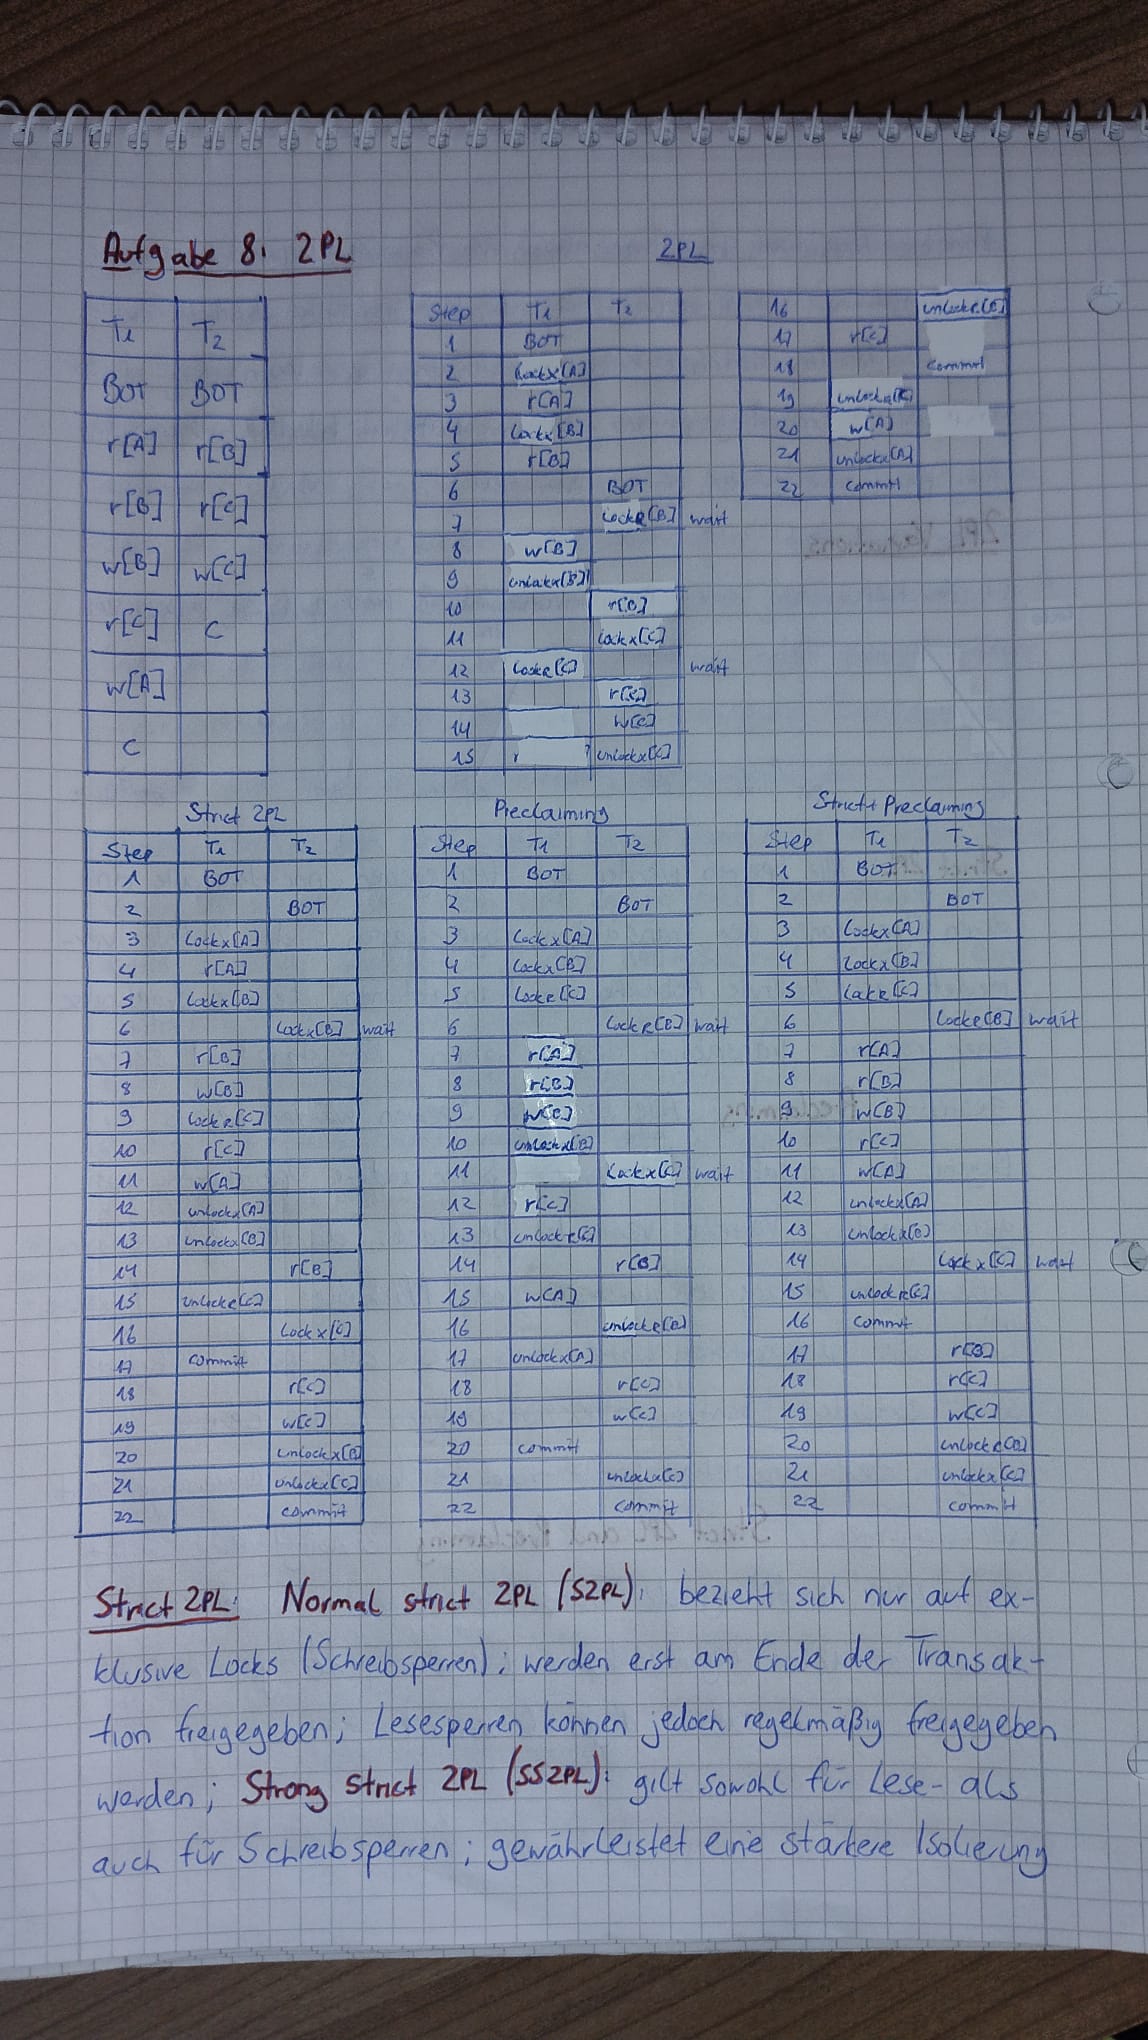 Aufgabe 8: 2PL
2PL
T1 T2
BOT BOT
r[A] r[B]
r[B] r[C]
w[B] w[C]
r[C] C
w[A]
C
Step T1 T2
1 BOT
2 lockx[A]
3 r[A]
4 lockx[B]
5 r[B]
6 BOT
7 lockR[B] wait
8 w[B]
9 unlockx[B]
10 r[B]
11 lockx[C]
12 lockR[C] wait
13 r[C]
14 w[C]
15 unlockx[C]
16 unlockR[B]
17 r[C]
18 commit
19 unlockR[C]
20 w[A]
21 unlockx[A]
22 commit
Strict 2PL
Step T1 T2
1 BOT
2 BOT
3 lockx[A]
4 r[A]
5 lockx[B]
6 lockx[B] wait
7 r[B]
8 w[B]
9 lockR[C]
10 r[C]
11 w[A]
12 unlockx[A]
13 unlockx[B]
14 r[B]
15 unlockR[C]
16 lockx[C]
17 commit
18 r[C]
19 w[C]
20 unlockx[B]
21 unlockx[C]
22 commit
Preclaiming
Step T1 T2
1 BOT
2 BOT
3 lockx[A]
4 lockx[B]
5 lockR[C]
6 lockR[B] wait
7 r[A]
8 r[B]
9 w[B]
10 unlockx[B]
11 lockx[C] wait
12 r[C]
13 unlockR[C]
14 r[B]
15 w[A]
16 unlockR[B]
17 unlockx[A]
18 r[C]
19 w[C]
20 commit
21 unlockx[C]
22 commit
Strict+ Preclaiming
Step T1 T2
1 BOT
2 BOT
3 lockx[A]
4 lockx[B]
5 lockR[C]
6 lockR[B] wait
7 r[A]
8 r[B]
9 w[B]
10 r[C]
11 w[A]
12 unlockx[A]
13 unlockx[B]
14 lockx[C] wait
15 unlockR[C]
16 commit
17 r[B]
18 r[C]
19 w[C]
20 unlockR[B]
21 unlockx[C]
22 commit
Strict 2PL: Normal strict 2PL (S2PL): bezieht sich nur auf ex-
klusive Locks (Schreibsperren); werden erst am Ende der Transak-
tion freigegeben; Lesesperren können jedoch regelmäßig freigegeben
werden; Strong strict 2PL (SS2PL): gilt sowohl für Lese- als
auch für Schreibsperren; gewährleistet eine stärkere Isolierung